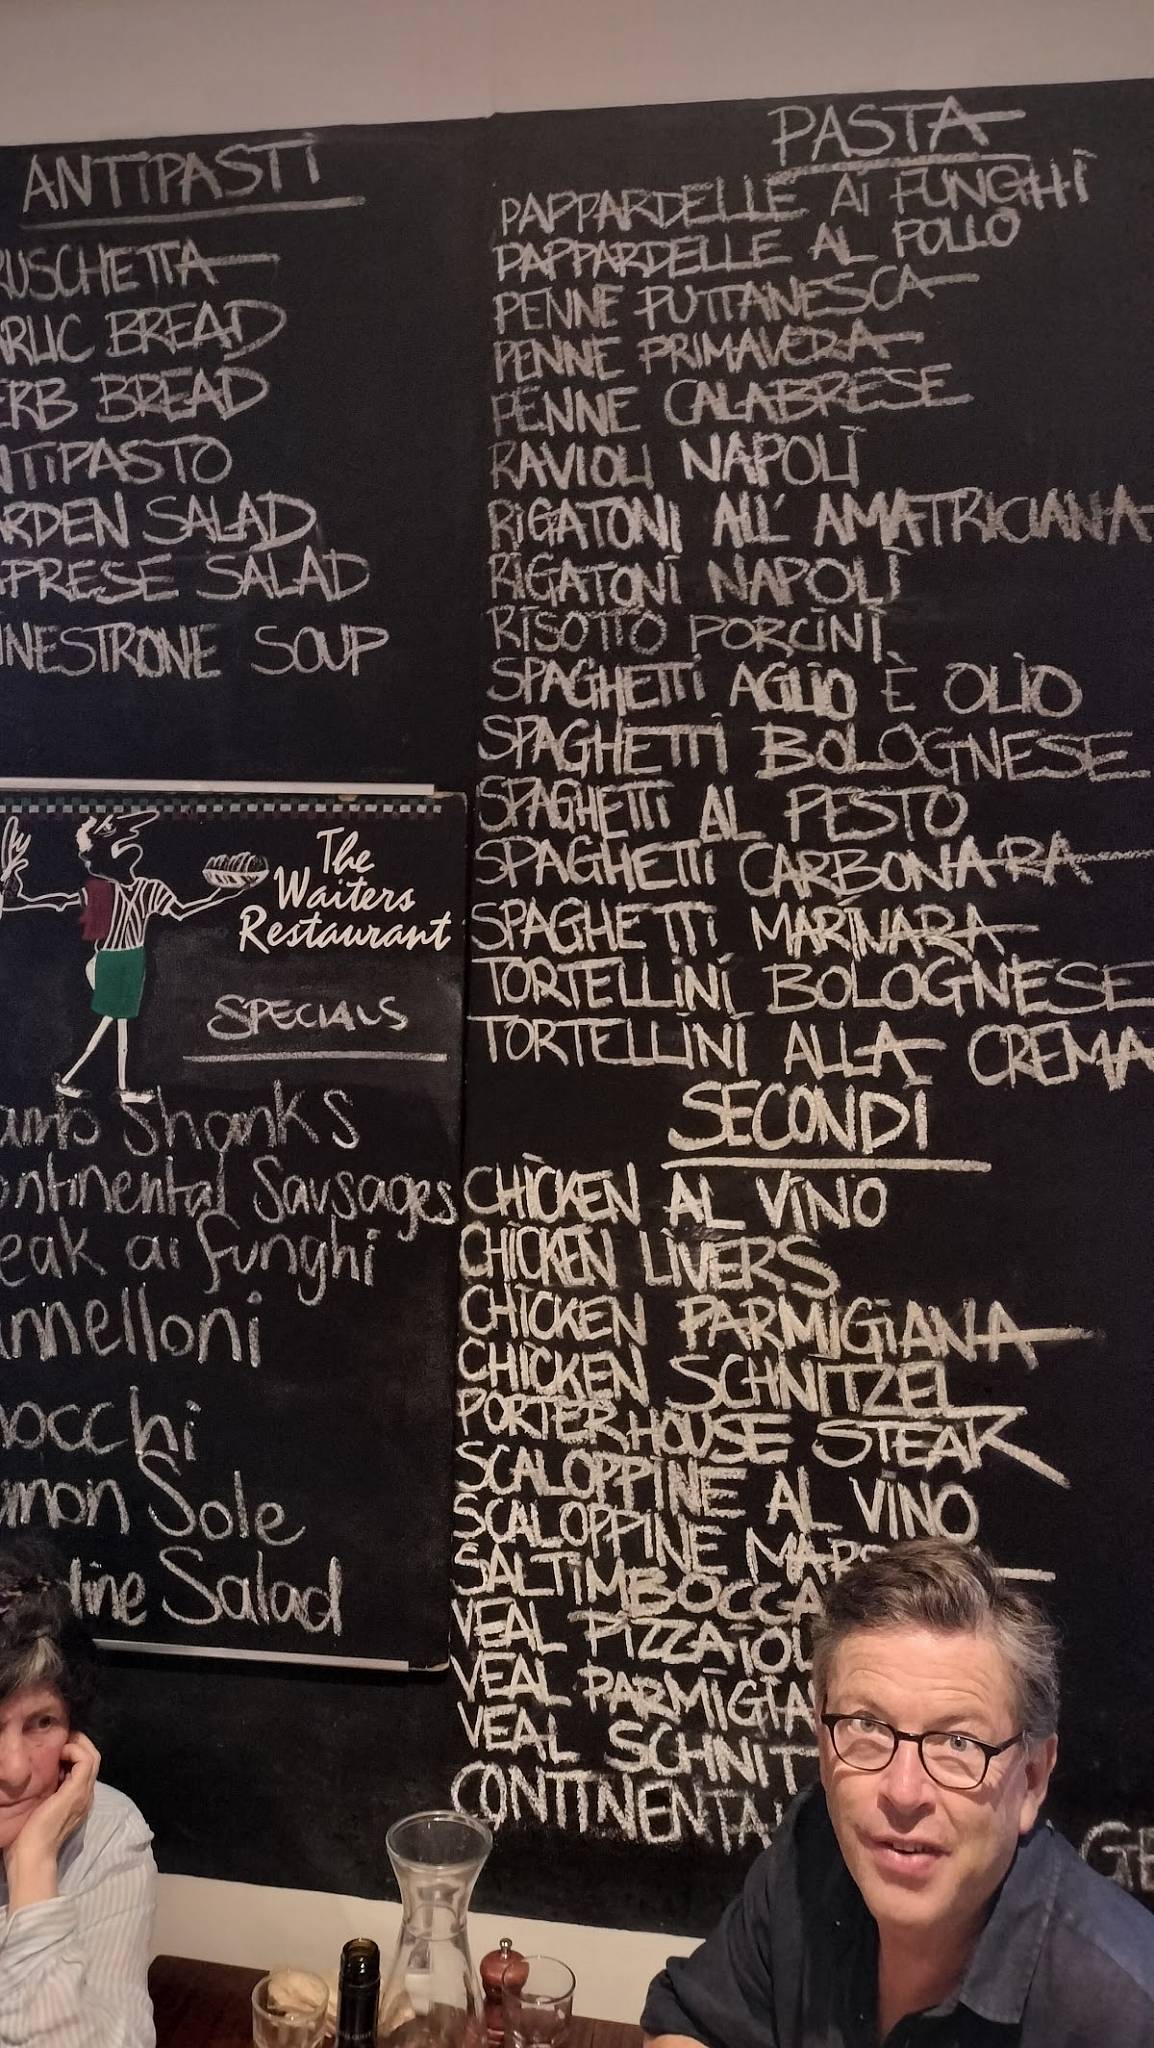 ANTIPASTI
RUSCHETTA
ARLIC BREAD
ERB BREAD
NTIPASTO
ARDEN SALAD
APRESE SALAD
INESTRONE SOUP
The
Waiters
Restaurant
SPECIALS
amb Shanks
ontinental Sausages
eak ai funghi
annelloni
nocchi
emon Sole
Salad
PASTA
PAPPARDELLE AI FUNGHI
PAPPARDELLE AL POLLO
PENNE PUTTANESCA
PENNE PRIMAVERA
PENNE CALABRESE
RAVIOLI NAPOLI
RIGATONI ALL' AMATRICIANA
RIGATONI NAPOLI
RISOTTO PORCINI
SPAGHETTI AGLIO È OLIO
SPAGHETTI BOLOGNESE
SPAGHETTI AL PESTO
SPAGHETTI CARBONARA
SPAGHETTI MARINARA
TORTELLINI BOLOGNESE
TORTELLINI ALLA CREMA
SECONDI
CHICKEN AL VINO
CHICKEN LIVERS
CHICKEN PARMIGIANA
CHICKEN SCHNITZEL
PORTERHOUSE STEAK
SCALOPPINE AL VINO
SCALOPPINE MARS
SALTIMBOCCA
VEAL PIZZAIOL
VEAL PARMIGIAN
VEAL SCHNIT
CONTINENTAL
GE